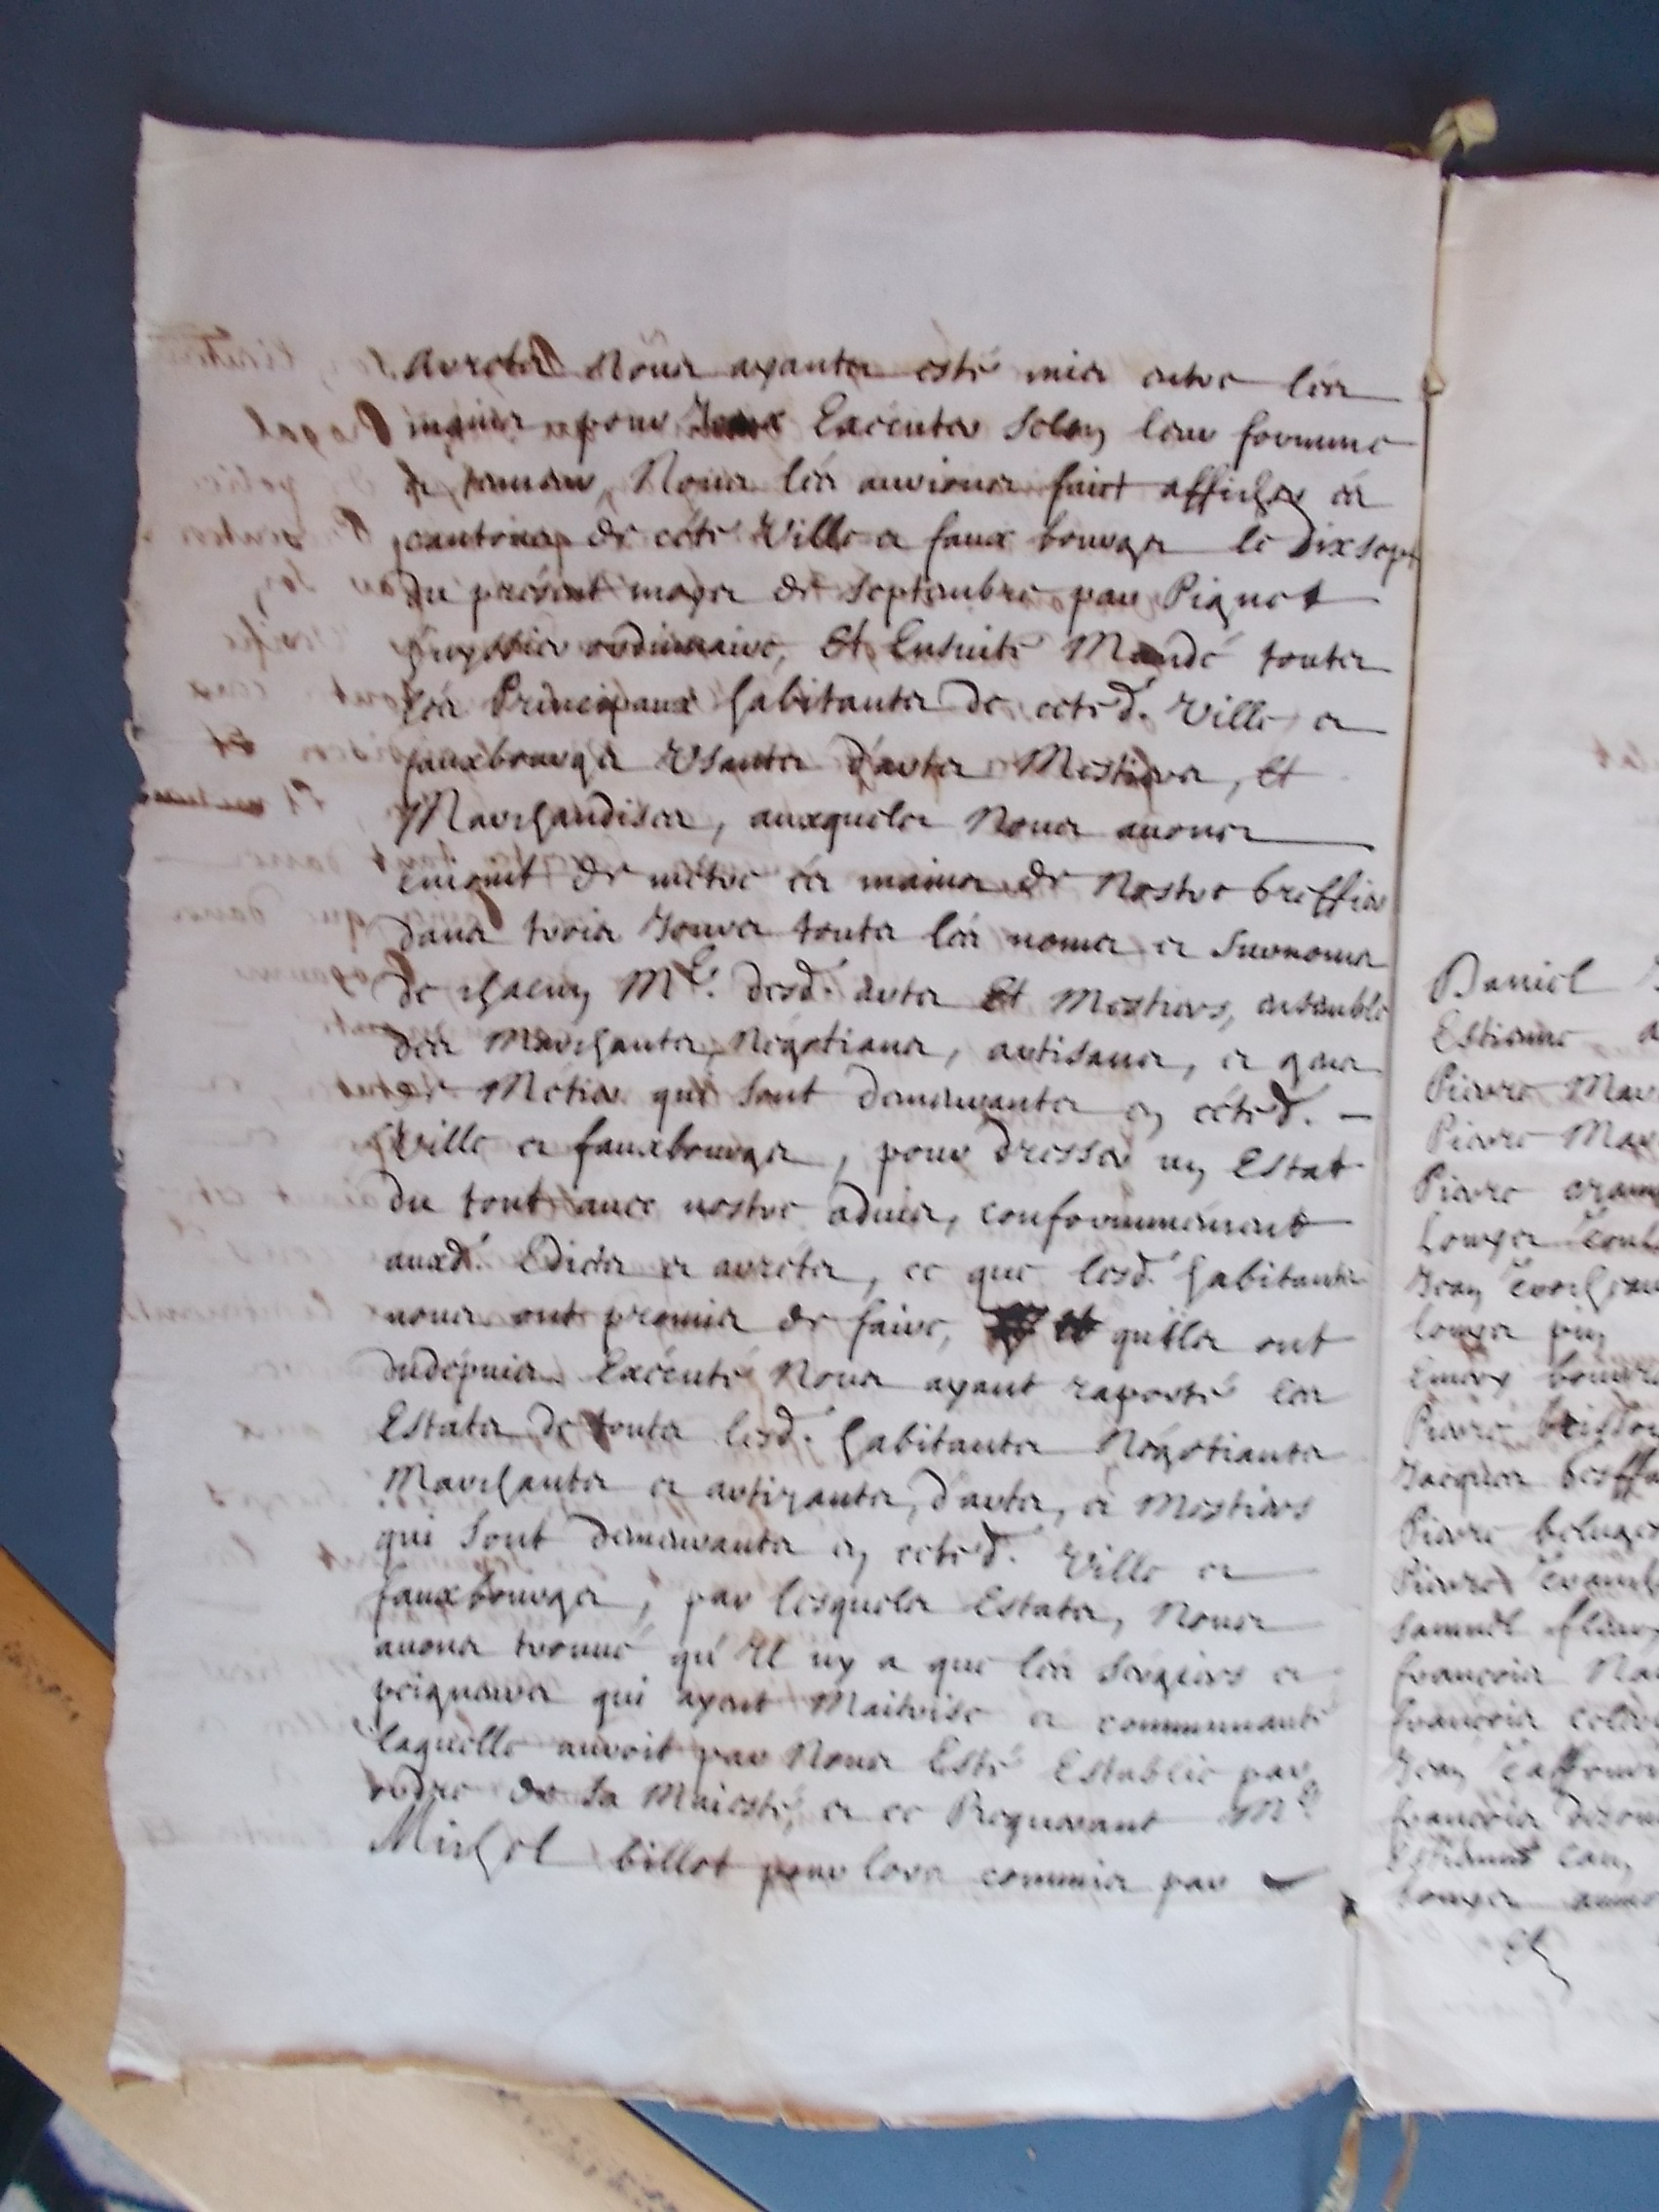 Arretes Nous ayants esté mis entre les
mains pour Iceux Exécuter Selon leur forme
& teneur, Nous les aurions faict afficher és
cantons de céte Ville et faux bourgs le Dixsept
du présent moys de Septembre par Piquet
huyssier ordinaire, Et Ensuite Mandé touts
les Principaux habitants de céted. Ville et
fauxbourgs Usants d'arts Mestiers, Et
Marchandises, auxquels Nous avons
enioint de métre és mains de Nostre Greffier
dans trois Jours touts les noms et Surnoms
de chacun Me. desd. arts Et Mestiers, ensemble
des Marchants, Négotians, artisans, et gens
de Métier qui sont demeurants en céted.
Ville et fauxbourgs, pour dresser un Estat
du tout avec nostre advis, conformément
auxd. Edicts et arrétés, ce que lesd. habitants
nous ont promis de faire, et quils ont
dudépuis Exécuté Nous ayant raporté les
Estats de touts lesd. habitants Négotiants
Marchants et artizants, d'arts, et Mestiers
qui sont demeurants en céted. Ville et
fauxbourgs, par lesquels Estats, Nous
avons trouvé qu'Il ny a que les Sergiers et
peigneurs qui ayent Maitrise et communauté
laquelle auroit par Nous Esté Establie par
ordre de Sa Maiesté, et ce Requerant Me
Michel billot pour lors commis par
Daniel
Estienne
Pierre
Pierre
Pierre
Jean
Pierre
Jacques
Pierre
Pierre
Samuel
francois
francois
Jean
francois
Estienne